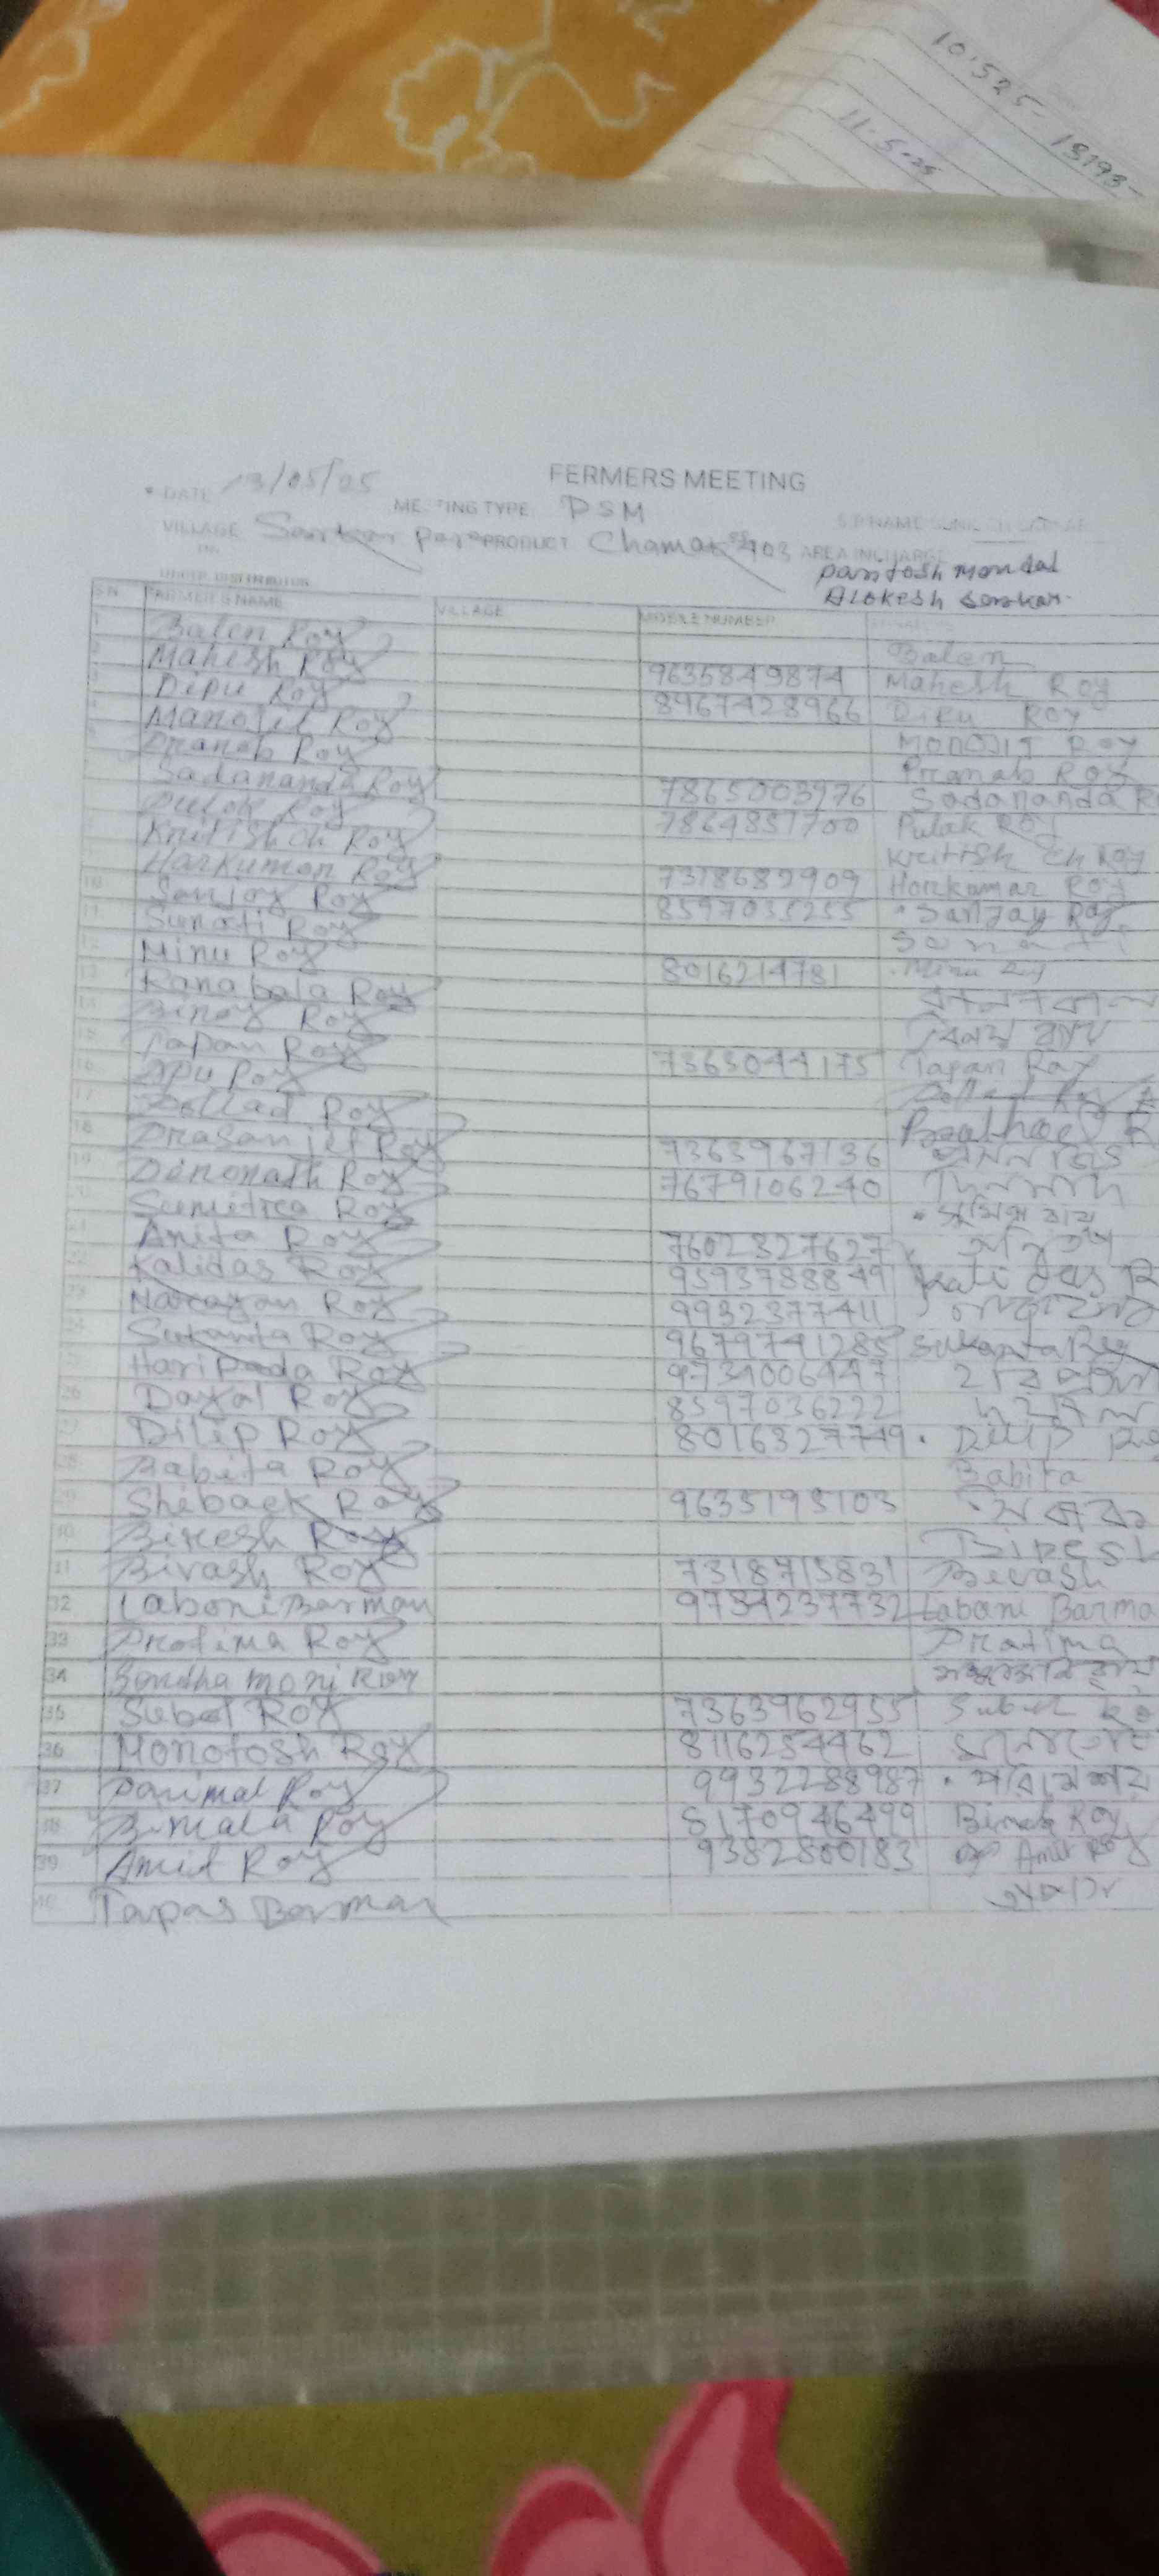 10.5.25 - 15193-
11.5.25
FERMERS MEETING
DATE 13/05/25
MEETING TYPE DSM
VILLAGE Sarkar para PRODUCT Chamak AREA INCHARGE
Paritosh Mondal
Alokesh Sarkar
UNDER DISTRIBUTOR
SN FARMER'S NAME VILLAGE MOBILE NUMBER
1 Balen Roy Balen
2 Mahesh Roy 9635849874 Mahesh Roy
3 Dipu Roy 8967428966 Dipu Roy
4 Manojit Roy MONOJIT Roy
5 Pranab Roy Pranab Roy
Sadananda Roy 7865003976 Sadananda R
Pulok Roy 7864851700 Pulak Roy
Kritish ch Roy Kritish ch Roy
Harkumar Roy 7318682909 Horkumar Roy
10 Sanjoy Roy 8597035255 Sanjay Roy
11 Sunoti Roy
12 Minu Roy 8016214781 Minu Roy
13 Ranabala Roy
14 Binoy Roy বিনয় রায়
15 Tapan Roy 7363044175 Tapan Roy
16 Apu Roy
17 Pollad Roy
18 Prasanjit Roy 7363967136
19 Dinonath Roy 7679106240
20 Sumitra Roy সুমিত্রা রায়
21 Anita Roy 7602827627
22 Kalidas Roy 9593788849 Kali das R
23 Narayan Roy 9932377411
24 Sukanta Roy 9679741285 Sukanta Roy
25 Haripada Roy 9734006447
26 Dayal Roy 8597036222
27 Dilip Roy 8016327749 Dilip Ro
28 Babita Roy Babita
29 Sheback Roy 9635195103
30 Bipesh Roy Bipesh
31 Bivash Roy 7318715831 Bivash
32 Laboni Barman 9734237732 Labani Barma
33 Protima Roy Pratima
34 Sondha moni Roy
35 Subol Roy 7363962955 Subol Ro
36 Monotosh Roy 8116254462
37 Parimal Roy 9932288987
38 Bimala Roy 8170946499 Bimala Roy
39 Amit Roy 9382800183 Amit Roy
40 Tapas Barman